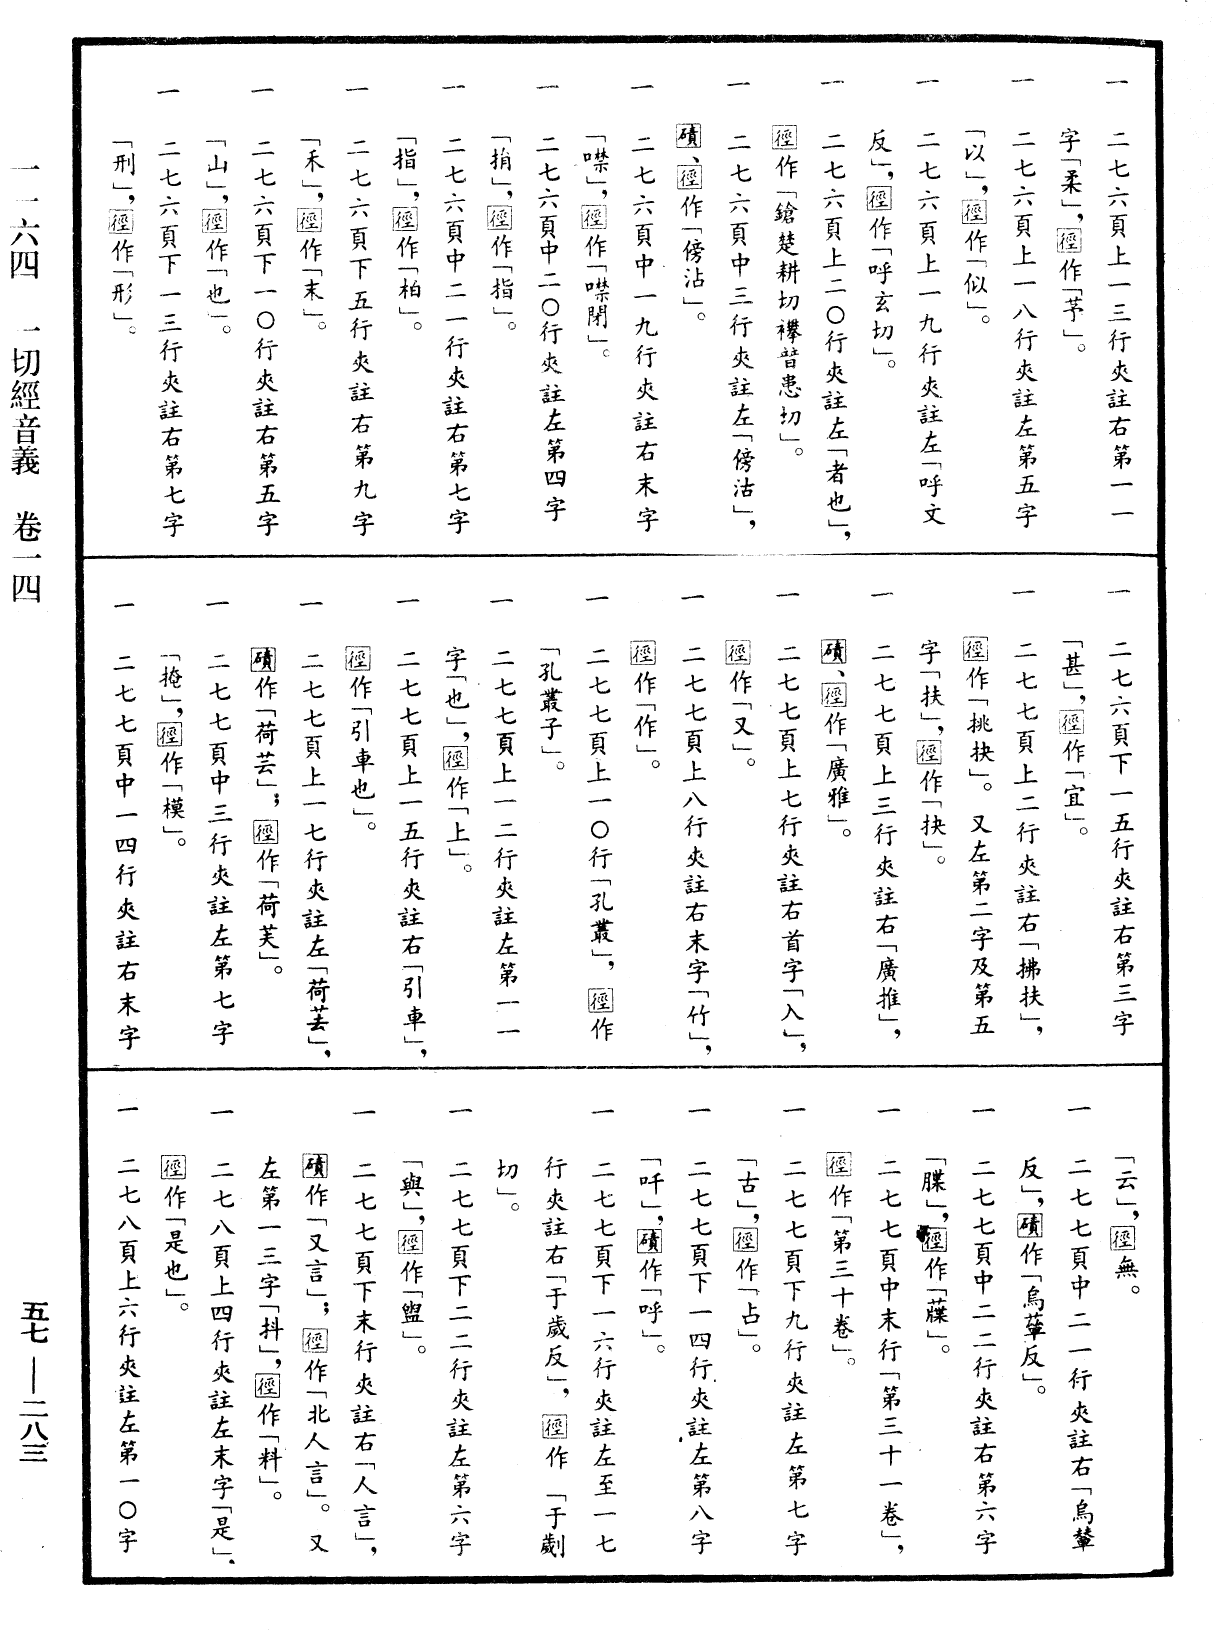 一一六四　一切經音義　卷一四
五七——二八三
一　二七六頁上一三行夾註右第一一
字「柔」，徑作「芧」。
一　二七六頁上一八行夾註左第五字
「以」，徑作「似」。
一　二七六頁上一九行夾註左「呼文
反」，徑作「呼玄切」。
一　二七六頁上二〇行夾註左「者也」，
徑作「鎗楚耕切襻普患切」。
一　二七六頁中三行夾註左「傍沽」，
磧、徑作「傍沾」。
一　二七六頁中一九行夾註右末字
「噤」，徑作「噤閉」。
一　二七六頁中二〇行夾註左第四字
「捎」，徑作「指」。
一　二七六頁中二一行夾註右第七字
「指」，徑作「柏」。
一　二七六頁下五行夾註右第九字
「禾」，徑作「末」。
一　二七六頁下一〇行夾註右第五字
「山」，徑作「也」。
一　二七六頁下一三行夾註右第七字
「刑」，徑作「形」。
一　二七六頁下一五行夾註右第三字
「甚」，徑作「宜」。
一　二七七頁上二行夾註右「拂扶」，
徑作「挑抉」。又左第二字及第五
字「扶」，徑作「抉」。
一　二七七頁上三行夾註右「廣推」，
磧、徑作「廣雅」。
一　二七七頁上七行夾註右首字「入」，
徑作「又」。
一　二七七頁上八行夾註右末字「竹」，
徑作「作」。
一　二七七頁上一〇行「孔叢」，徑作
「孔叢子」。
一　二七七頁上一二行夾註左第一一
字「也」，徑作「上」。
一　二七七頁上一五行夾註右「引車」，
徑作「引車也」。
一　二七七頁上一七行夾註左「荷䒷」，
磧作「荷芸」；徑作「荷芙」。
一　二七七頁中三行夾註左第七字
「掩」，徑作「模」。
一　二七七頁中一四行夾註右末字
「云」，徑無。
一　二七七頁中二一行夾註右「烏輦
反」，磧作「烏葷反」。
一　二七七頁中二二行夾註右第六字
「腜」，徑作「䕈」。
一　二七七頁中末行「第三十一卷」，
徑作「第三十卷」。
一　二七七頁下九行夾註左第七字
「古」，徑作「占」。
一　二七七頁下一四行夾註左第八字
「吀」，磧作「呼」。
一　二七七頁下一六行夾註左至一七
行夾註右「于歲反」，徑作「于劌
切」。
一　二七七頁下二二行夾註左第六字
「與」，徑作「盥」。
一　二七七頁下末行夾註右「人言」，
磧作「又言」；徑作「北人言」。又
左第一三字「抖」，徑作「料」。
一　二七八頁上四行夾註左末字「是」，
徑作「是也」。
一　二七八頁上六行夾註左第一〇字